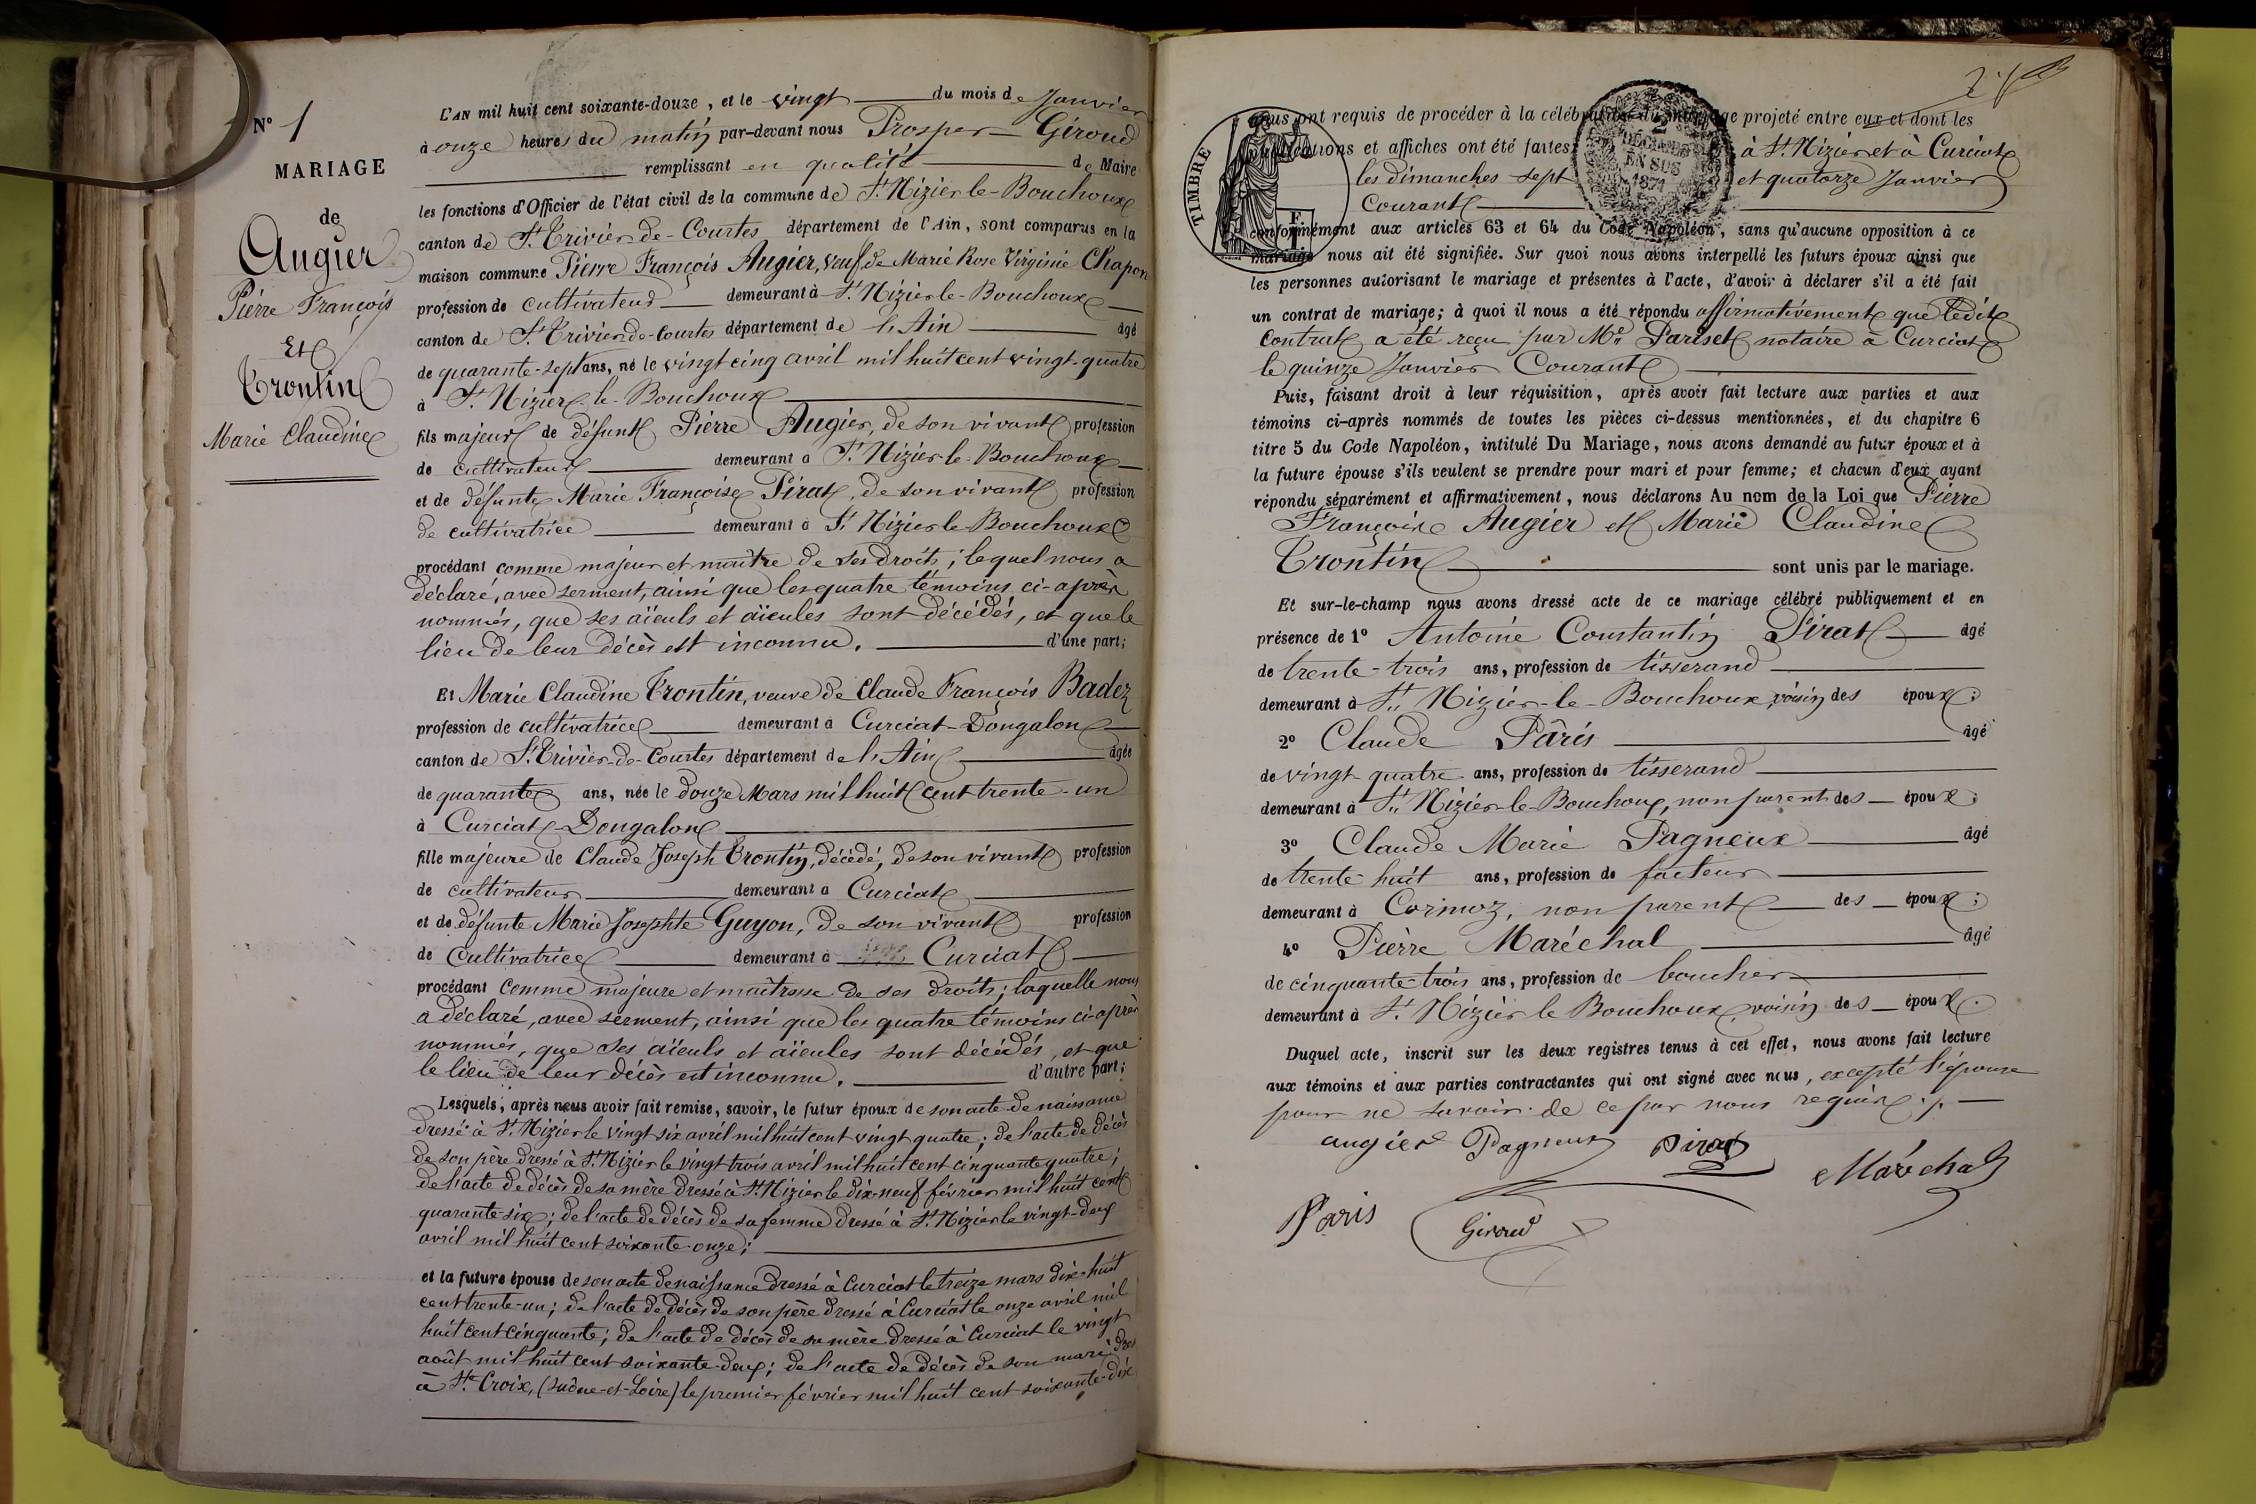 N° 1
MARIAGE
de
Augier
Pierre François
Et
Trontin
Marie Claudine
L'AN mil huit cent soixante-douze, et le vingt du mois de Janvier
à onze heures du matin par-devant nous Prosper Giroud
remplissant en qualité de Maire
les fonctions d'Officier de l'état civil de la commune de St Nizier-le-Bouchoux
canton de St Trivier-de-Courtes département de l'Ain, sont comparus en la
maison commune Pierre François Augier, veuf de Marie Rose Virginie Chapon
profession de cultivateur demeurant à St Nizier-le-Bouchoux
canton de St Trivier-de-Courtes département de l'Ain âgé
de quarante-sept ans, né le vingt cinq avril mil huit cent vingt-quatre
à St Nizier-le-Bouchoux
fils majeur de défunt Pierre Augier, de son vivant profession
de cultivateur demeurant à St Nizier-le-Bouchoux
et de défunte Marie Françoise Pirat, de son vivant profession
de cultivatrice demeurant à St Nizier-le-Bouchoux
procédant comme majeur et maître de ses droits; lequel nous a
déclaré, avec serment, ainsi que les quatre témoins ci-après
nommés, que ses aïeuls et aïeules sont décédés, et que le
lieu de leur décès est inconnu. d'une part;
Et Marie Claudine Trontin, veuve de Claude François Badez
profession de cultivatrice demeurant à Curciat-Dongalon
canton de St Trivier-de-Courtes département de l'Ain âgée
de quarante ans, née le douze Mars mil huit cent trente-un
à Curciat-Dongalon
fille majeure de Claude Joseph Trontin, décédé, de son vivant profession
de cultivateur demeurant à Curciat
et de défunte Marie Josephte Guyon, de son vivant profession
de cultivatrice demeurant à Curciat
procédant comme majeure et maîtresse de ses droits; laquelle nous
a déclaré, avec serment, ainsi que les quatre témoins ci-après
nommés, que ses aïeuls et aïeules sont décédés, et que
le lieu de leur décès est inconnu. d'autre part;
Lesquels, après nous avoir fait remise, savoir, le futur époux de son acte de naissance
dressé à St Nizier le vingt six avril mil huit cent vingt quatre; de l'acte de décès
de son père dressé à St Nizier le vingt trois avril mil huit cent cinquante quatre;
de l'acte de décès de sa mère dressé à St Nizier le dix-neuf février mil huit cent
quarante-six; de l'acte de décès de sa femme dressé à St Nizier le vingt-deux
avril mil huit cent soixante-onze;
et la future épouse de son acte de naissance dressé à Curciat le treize mars dix-huit
cent trente-un; de l'acte de décès de son père dressé à Curciat le onze avril mil
huit cent cinquante; de l'acte de décès de sa mère dressé à Curciat le vingt
août mil huit cent soixante-deux; de l'acte de décès de son mari
à Ste Croix, (Saône-et-Loire) le premier février mil huit cent soixante-dix
nous ont requis de procéder à la célébration du mariage projeté entre eux et dont les
publications et affiches ont été faites à St Nizier et à Curciat
les dimanches sept et quatorze Janvier
Courant
TIMBRE
2
DÉCIMES
EN SUS
1871
conformément aux articles 63 et 64 du Code Napoléon, sans qu'aucune opposition à ce
mariage nous ait été signifiée. Sur quoi nous avons interpellé les futurs époux ainsi que
les personnes autorisant le mariage et présentes à l'acte, d'avoir à déclarer s'il a été fait
un contrat de mariage; à quoi il nous a été répondu affirmativement que ledit
Contrat a été reçu par Me Pariset notaire à Curciat
le quinze Janvier Courant
Puis, faisant droit à leur réquisition, après avoir fait lecture aux parties et aux
témoins ci-après nommés de toutes les pièces ci-dessus mentionnées, et du chapitre 6
titre 5 du Code Napoléon, intitulé Du Mariage, nous avons demandé au futur époux et à
la future épouse s'ils veulent se prendre pour mari et pour femme; et chacun d'eux ayant
répondu séparément et affirmativement, nous déclarons Au nom de la Loi que Pierre
François Augier et Marie Claudine
Trontin sont unis par le mariage.
Et sur-le-champ nous avons dressé acte de ce mariage célébré publiquement et en
présence de 1° Antoine Constantin Pirat âgé
de trente-trois ans, profession de tisserand
demeurant à St Nizier-le-Bouchoux, voisin des époux;
2° Claude Pâris âgé
de vingt quatre ans, profession de tisserand
demeurant à St Nizier-le-Bouchoux, non parent des époux;
3° Claude Marie Pagneux âgé
de trente huit ans, profession de facteur
demeurant à Cormoz, non parent des époux;
4° Pierre Maréchal âgé
de cinquante-trois ans, profession de boucher
demeurant à St Nizier le Bouchoux, voisin des époux.
Duquel acte, inscrit sur les deux registres tenus à cet effet, nous avons fait lecture
aux témoins et aux parties contractantes qui ont signé avec nous, excepté l'épouse
pour ne savoir de ce par nous requise ./.
augier Pagneux Pirat Maréchal
Paris Giroud